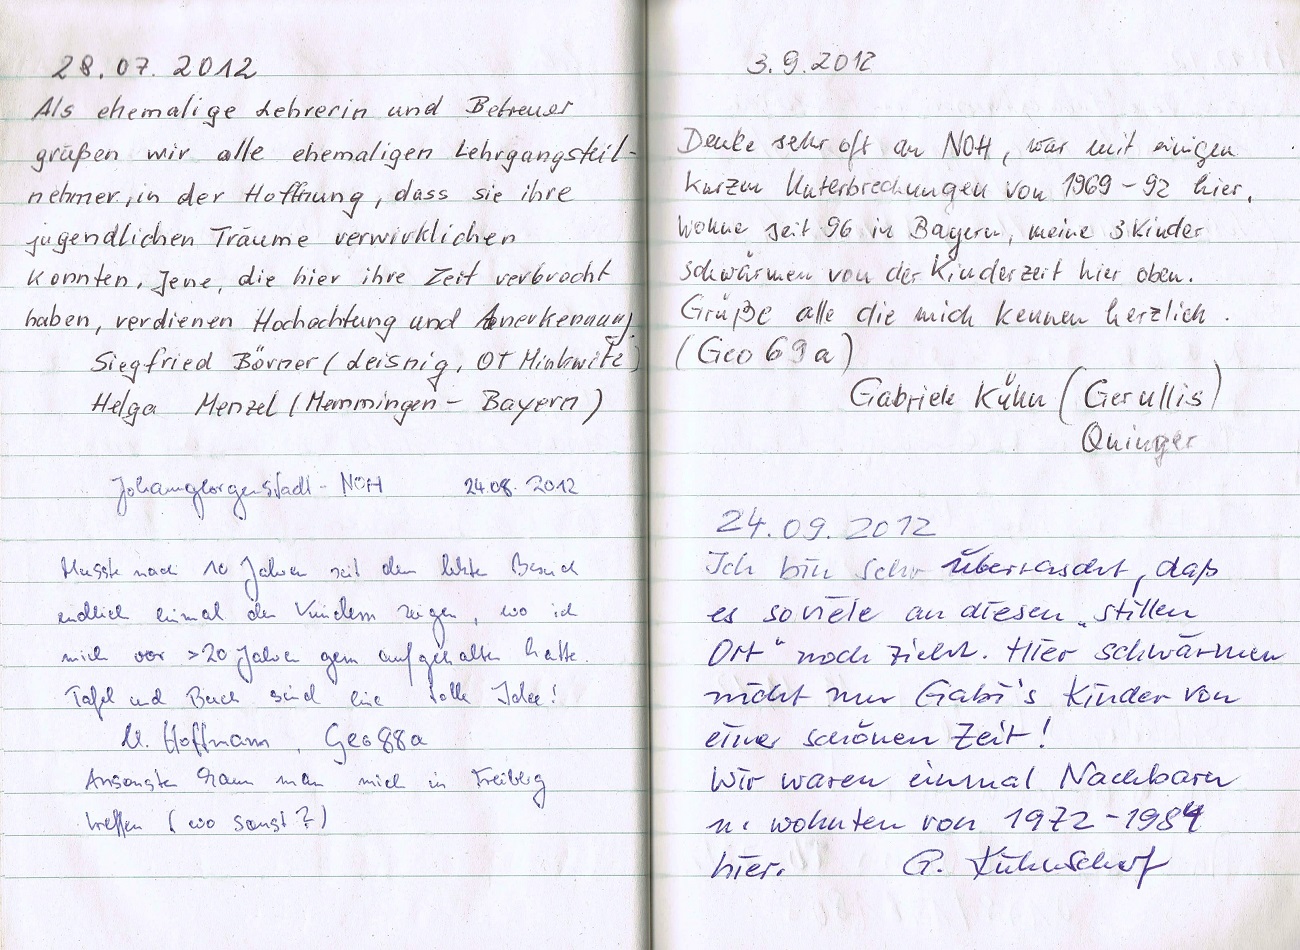 28.07.2012
Als ehemalige Lehrerin und Betreuer
grüßen wir alle ehemaligen Lehrgangsteil-
nehmer, in der Hoffnung, dass sie ihre
jugendlichen Träume verwirklichen
konnten. Jene, die hier ihre Zeit verbracht
haben, verdienen Hochachtung und Anerkennung.
Siegfried Börner (Leisnig, OT Minkwitz)
Helga Menzel (Memmingen - Bayern)
Johanngeorgenstadt - NOH 24.08.2012
Musste nach 10 Jahren seit dem letzte Besuch
endlich einmal den Kindern zeigen, wo ich
mich vor >20 Jahren gern aufgehalten hatte.
Tafel und Buch sind eine tolle Idee!
U. Hoffmann, Geo88a
Ansonsten kann man mich in Freiberg
treffen (wo sonst?)
3.9.2012
Denke sehr oft an NOH, war mit einigen
kurzen Unterbrechungen von 1969 - 92 hier.
Wohne seit 96 in Bayern, meine 3 Kinder
schwärmen von der Kinderzeit hier oben.
Grüße alle die mich kennen herzlich.
(Geo 69a)
Gabriele Kühn (Gerullis)
Quinger
24.09.2012
Ich bin sehr überrascht, daß
es soviele an diesen „stillen
Ort“ noch zieht. Hier schwärmen
nicht nur Gabi's Kinder von
einer schönen Zeit!
Wir waren einmal Nachbarn
u. wohnten von 1972 - 1984
hier. G.